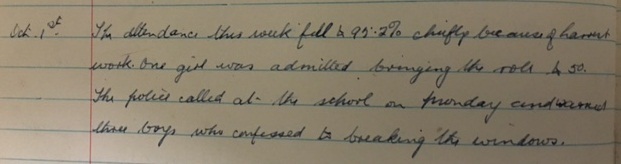 Oct. 1st. The attendance this week fell to 95.2% chiefly because of harvest
work. One girl was admitted bringing the roll to 50.
The police called at the school on Monday and warned
three boys who confessed to breaking the windows.